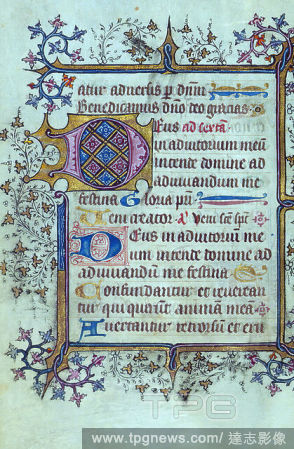 atur adversis p dnm
Benedicamus dno deo gracias
Deus ad terciā
in adiutorium meū
intende domine ad
adiuuandum me
festina Gloria pri
Veni creator a Veni scē spi
Deus in adiutorium me
um intende domine ad
adiuuandū me festina
Confundantur et reuerean
tur qui querunt animā meā
Auertantur retrorsū et eru
TPG
www.tpgnews.com / 達志影像